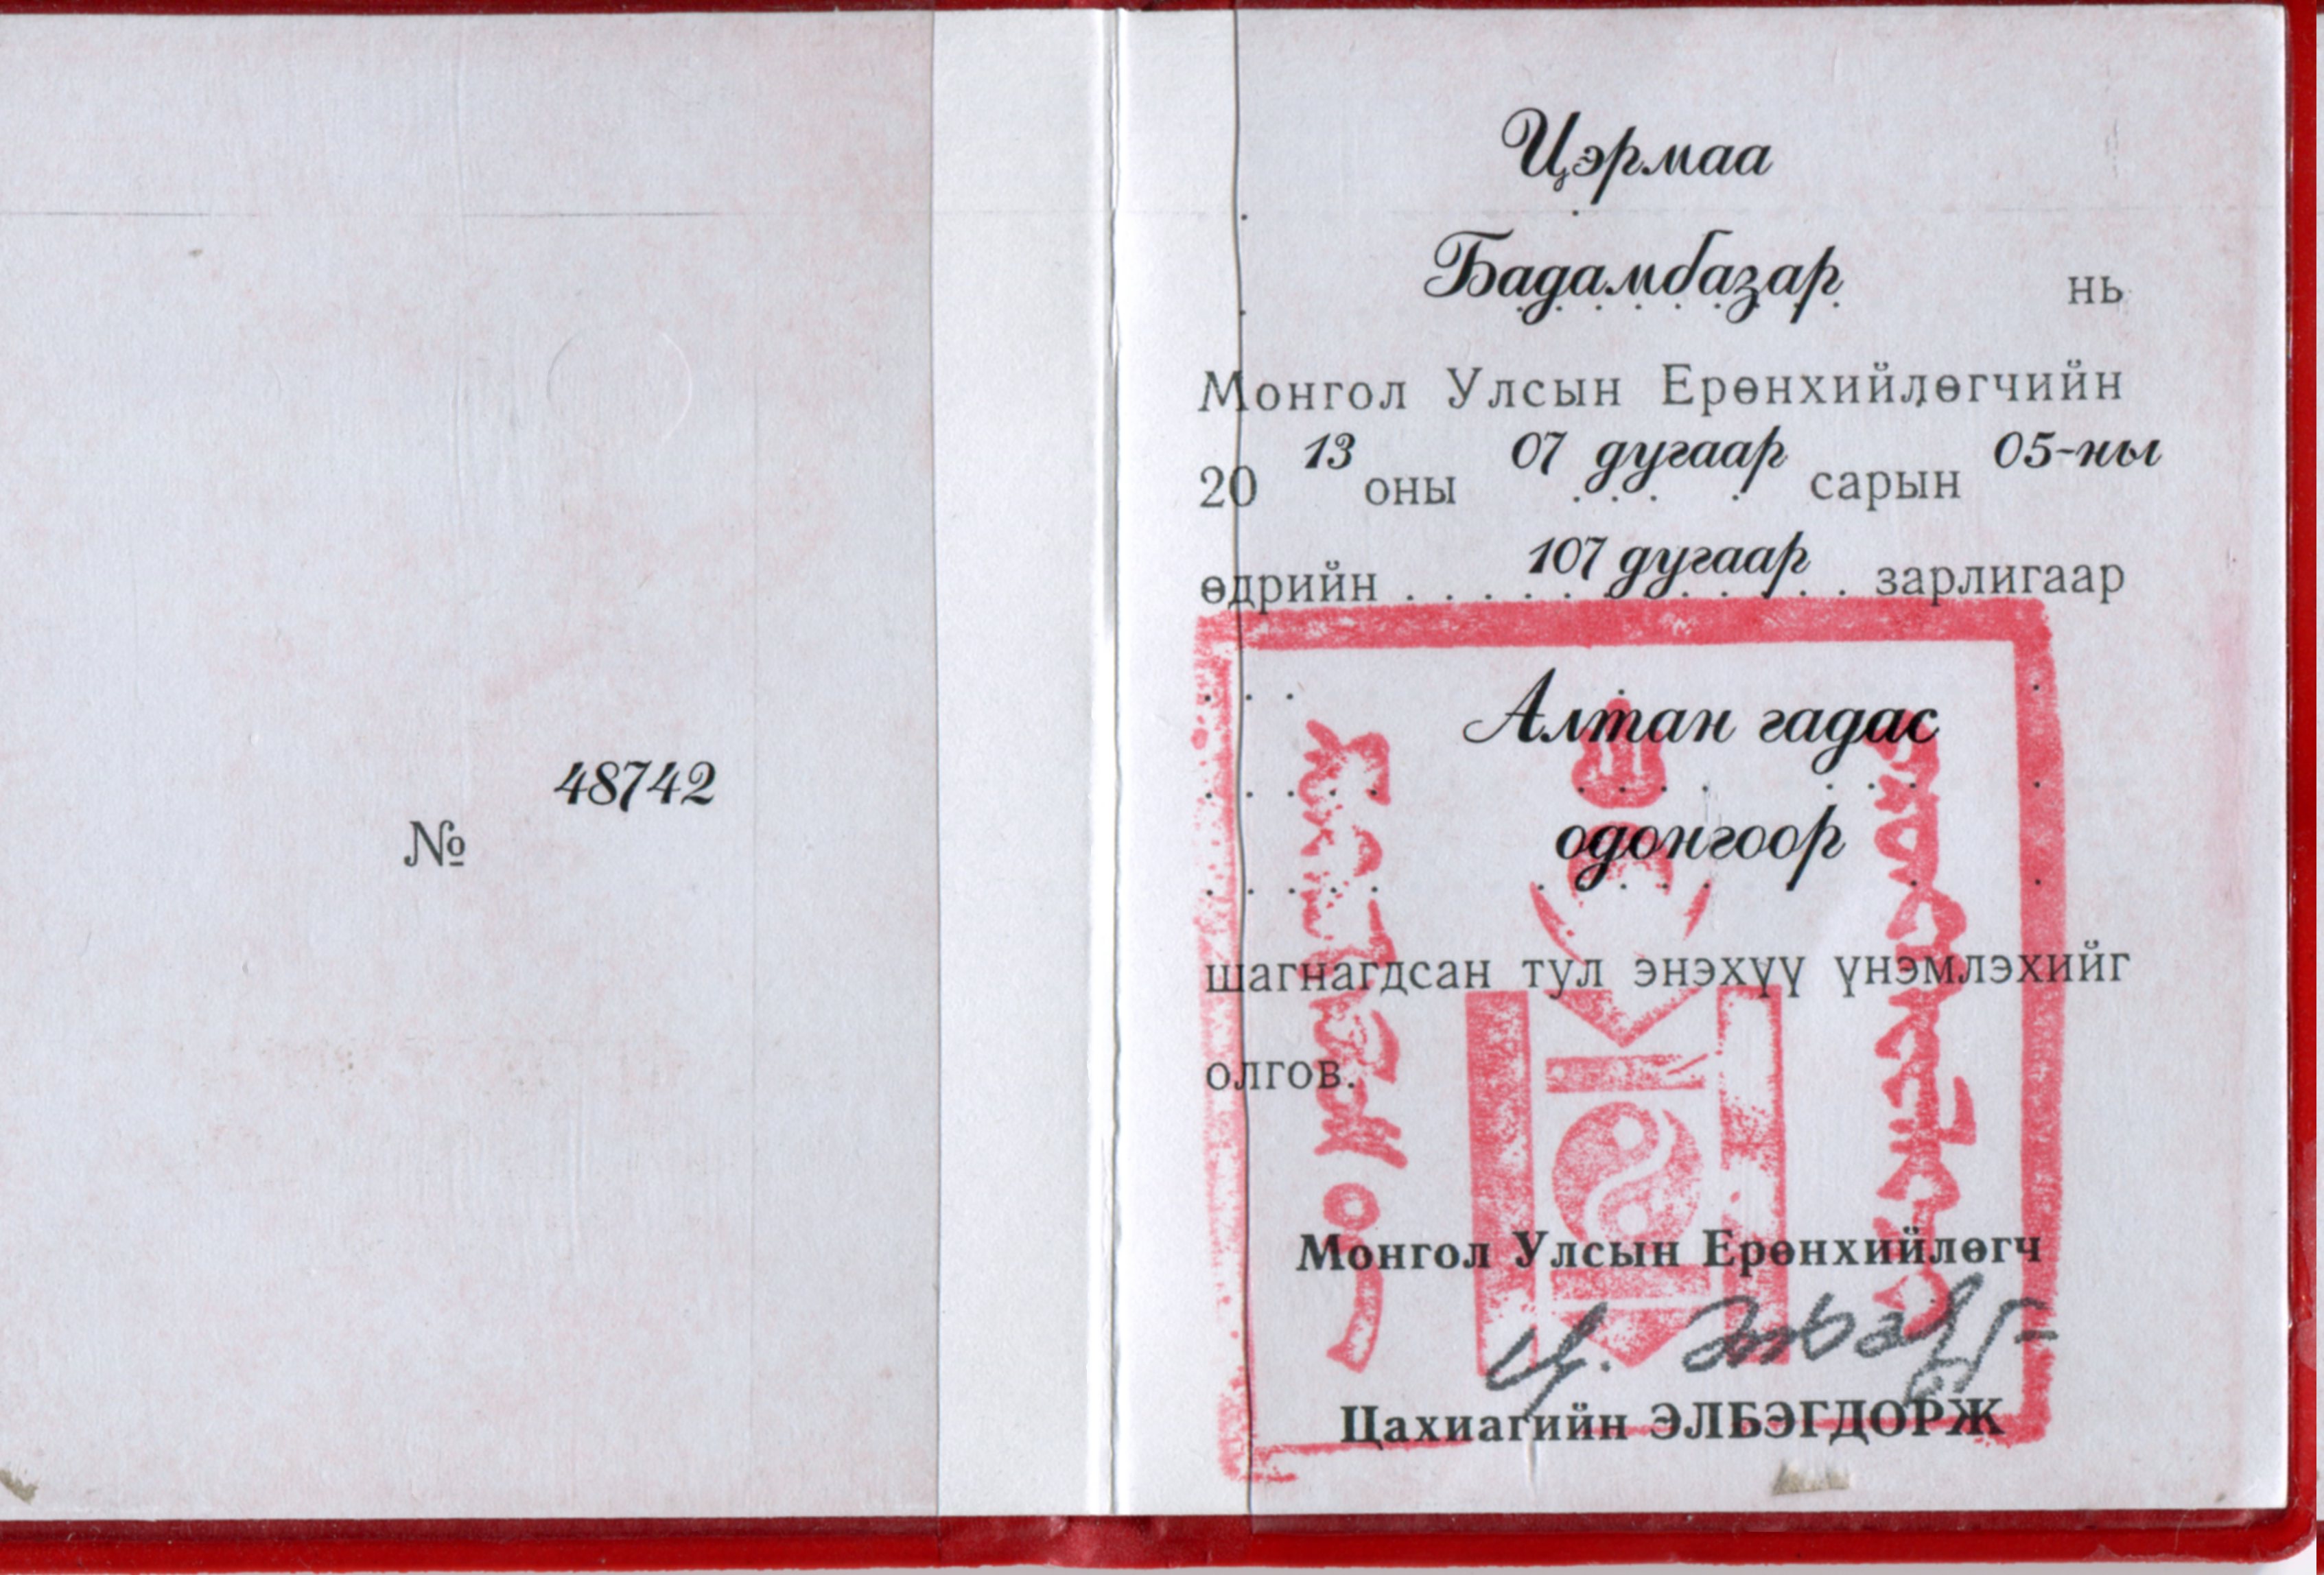 48742
№
Цэрмаа
Бадамбазар нь
Монгол Улсын Ерөнхийлөгчийн
20 13 оны 07 дугаар сарын 05-ны
өдрийн 107 дугаар зарлигаар
Алтан гадас
одонгоор
шагнагдсан тул энэхүү үнэмлэхийг
олгов.
Монгол Улсын Ерөнхийлөгч
Цахиагийн ЭЛБЭГДОРЖ